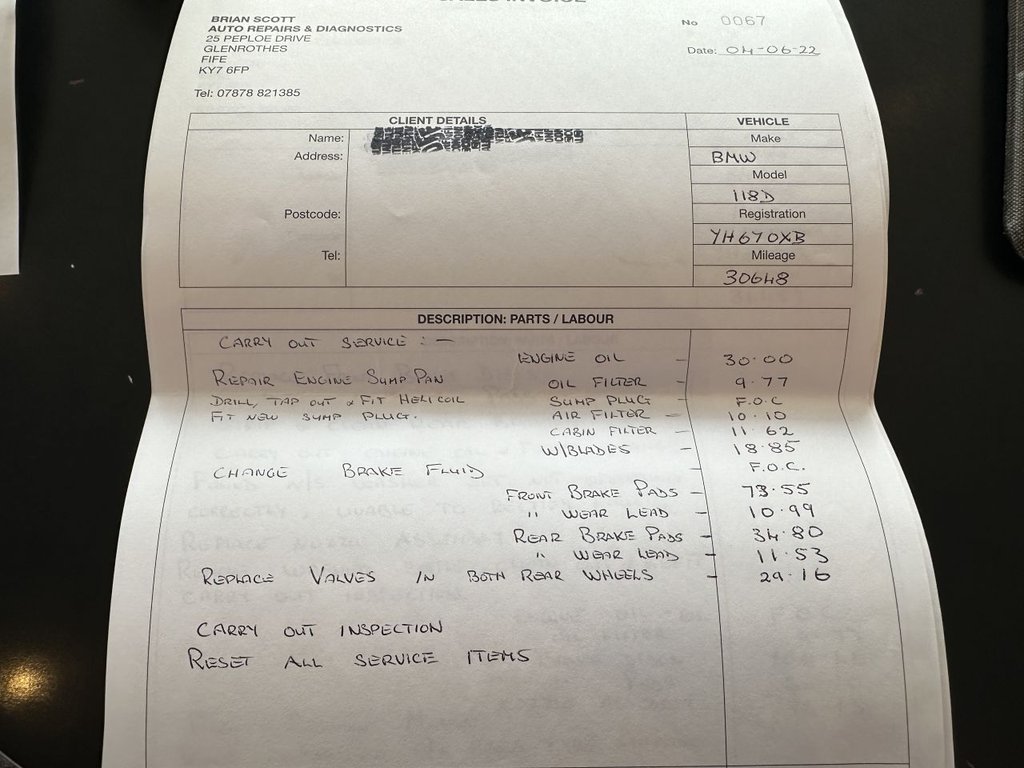 SALES INVOICE
BRIAN SCOTT
AUTO REPAIRS & DIAGNOSTICS
25 PEPLOE DRIVE
GLENROTHES
FIFE
KY7 6FP
Tel: 07878 821385
No 0067
Date: 04-06-22
CLIENT DETAILS
Name:
Address:
Postcode:
Tel:
VEHICLE
Make
BMW
Model
118D
Registration
YH67OXB
Mileage
30648
DESCRIPTION: PARTS / LABOUR
CARRY OUT SERVICE :-
ENGINE OIL - 30.00
REPAIR ENGINE SUMP PAN OIL FILTER - 9.77
DRILL, TAP OUT & FIT HELICOIL SUMP PLUG - F.O.C
FIT NEW SUMP PLUG. AIR FILTER - 10.10
CABIN FILTER - 11.62
W/BLADES - 18.85
CHANGE BRAKE FLUID - F.O.C.
FRONT BRAKE PADS - 73.55
" WEAR LEAD - 10.99
REAR BRAKE PADS - 34.80
" WEAR LEAD - 11.53
REPLACE VALVES IN BOTH REAR WHEELS - 29.16
CARRY OUT INSPECTION
RESET ALL SERVICE ITEMS